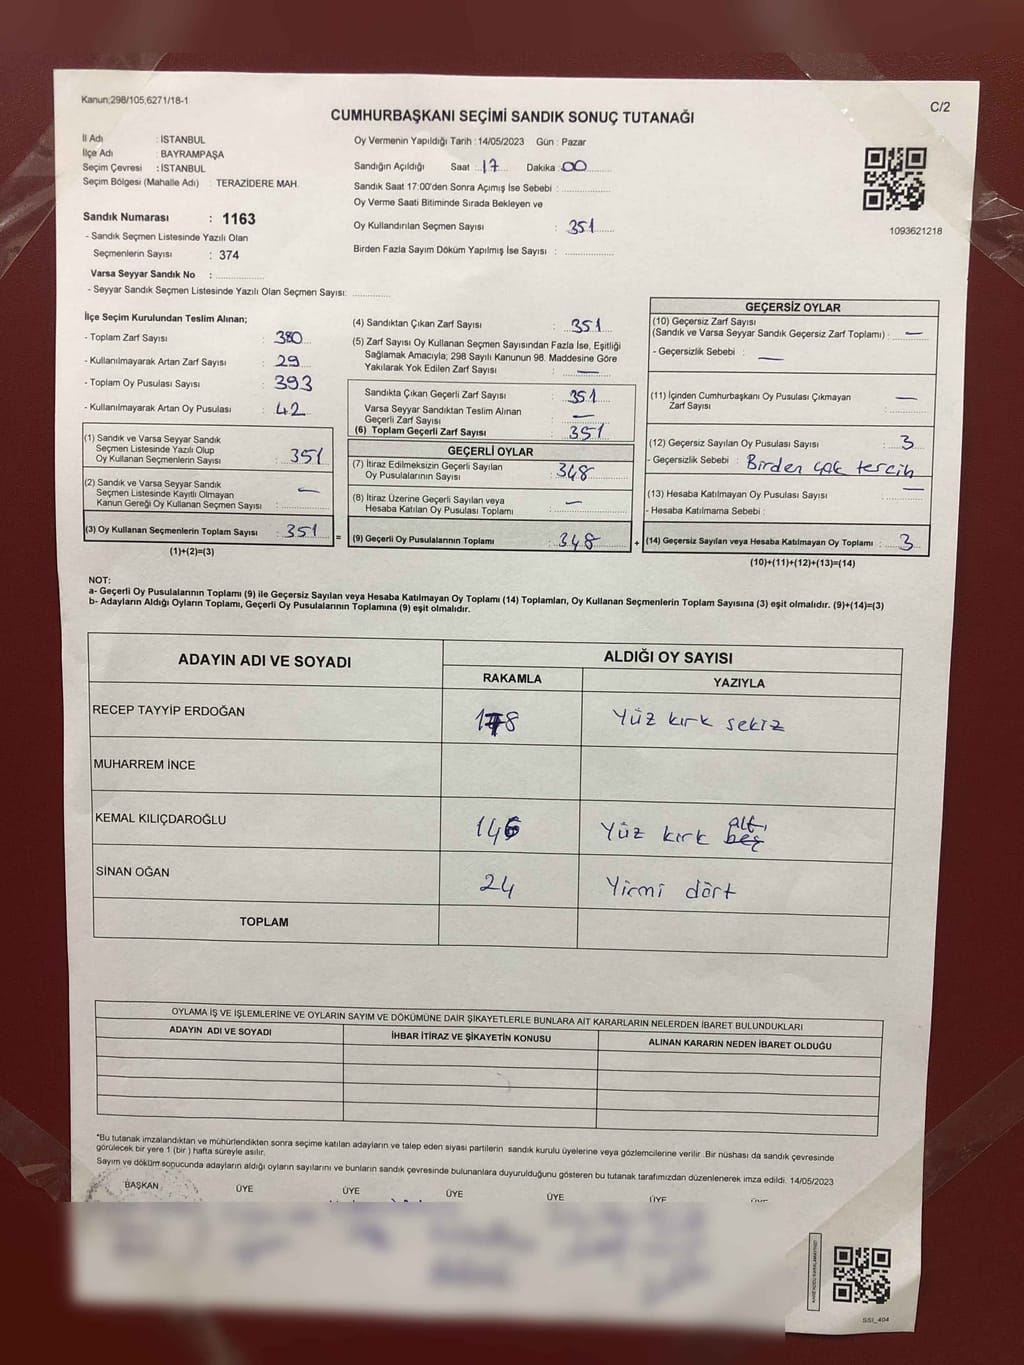 Kanun;298/105,6271/18-1
C/2
CUMHURBAŞKANI SEÇİMİ SANDIK SONUÇ TUTANAĞI
İl Adı : İSTANBUL
İlçe Adı : BAYRAMPAŞA
Seçim Çevresi : İSTANBUL
Seçim Bölgesi (Mahalle Adı) : TERAZİDERE MAH.
Sandık Numarası : 1163
- Sandık Seçmen Listesinde Yazılı Olan
Seçmenlerin Sayısı : 374
Varsa Seyyar Sandık No : ..............
- Seyyar Sandık Seçmen Listesinde Yazılı Olan Seçmen Sayısı: ............
Oy Vermenin Yapıldığı Tarih : 14/05/2023 Gün : Pazar
Sandığın Açıldığı Saat : 17 Dakika : 00
Sandık Saat 17:00'den Sonra Açımış İse Sebebi : ..............
Oy Verme Saati Bitiminde Sırada Bekleyen ve
Oy Kullandırılan Seçmen Sayısı : 351
Birden Fazla Sayım Döküm Yapılmış İse Sayısı : ..............
1093621218
İlçe Seçim Kurulundan Teslim Alınan;
- Toplam Zarf Sayısı : 380
- Kullanılmayarak Artan Zarf Sayısı : 29
- Toplam Oy Pusulası Sayısı : 393
- Kullanılmayarak Artan Oy Pusulası : 42
(1) Sandık ve Varsa Seyyar Sandık
Seçmen Listesinde Yazılı Olup
Oy Kullanan Seçmenlerin Sayısı : 351
(2) Sandık ve Varsa Seyyar Sandık
Seçmen Listesinde Kayıtlı Olmayan
Kanun Gereği Oy Kullanan Seçmen Sayısı : —
(3) Oy Kullanan Seçmenlerin Toplam Sayısı : 351
(1)+(2)=(3)
=
(4) Sandıktan Çıkan Zarf Sayısı : 351
(5) Zarf Sayısı Oy Kullanan Seçmen Sayısından Fazla İse, Eşitliği
Sağlamak Amacıyla; 298 Sayılı Kanunun 98. Maddesine Göre
Yakılarak Yok Edilen Zarf Sayısı : —
Sandıkta Çıkan Geçerli Zarf Sayısı : 351
Varsa Seyyar Sandıktan Teslim Alınan
Geçerli Zarf Sayısı : —
(6) Toplam Geçerli Zarf Sayısı : 351
GEÇERLİ OYLAR
(7) İtiraz Edilmeksizin Geçerli Sayılan
Oy Pusulalarının Sayısı : 348
(8) İtiraz Üzerine Geçerli Sayılan veya
Hesaba Katılan Oy Pusulası Toplamı : —
(9) Geçerli Oy Pusulalarının Toplamı : 348
+
GEÇERSİZ OYLAR
(10) Geçersiz Zarf Sayısı
(Sandık ve Varsa Seyyar Sandık Geçersiz Zarf Toplamı) : —
- Geçersizlik Sebebi : —
(11) İçinden Cumhurbaşkanı Oy Pusulası Çıkmayan
Zarf Sayısı : —
(12) Geçersiz Sayılan Oy Pusulası Sayısı : 3
- Geçersizlik Sebebi : Birden çok tercih
(13) Hesaba Katılmayan Oy Pusulası Sayısı : —
- Hesaba Katılmama Sebebi :
(14) Geçersiz Sayılan veya Hesaba Katılmayan Oy Toplamı : 3
(10)+(11)+(12)+(13)=(14)
NOT:
a- Geçerli Oy Pusulalarının Toplamı (9) ile Geçersiz Sayılan veya Hesaba Katılmayan Oy Toplamı (14) Toplamları, Oy Kullanan Seçmenlerin Toplam Sayısına (3) eşit olmalıdır. (9)+(14)=(3)
b- Adayların Aldığı Oyların Toplamı, Geçerli Oy Pusulalarının Toplamına (9) eşit olmalıdır.
ADAYIN ADI VE SOYADI
ALDIĞI OY SAYISI
RAKAMLA YAZIYLA
RECEP TAYYİP ERDOĞAN 178 Yüz kırk sekiz
MUHARREM İNCE
KEMAL KILIÇDAROĞLU 146 Yüz kırk beş altı
SİNAN OĞAN 24 Yirmi dört
TOPLAM
OYLAMA İŞ VE İŞLEMLERİNE VE OYLARIN SAYIM VE DÖKÜMÜNE DAİR ŞİKAYETLERLE BUNLARA AİT KARARLARIN NELERDEN İBARET BULUNDUKLARI
ADAYIN ADI VE SOYADI İHBAR İTİRAZ VE ŞİKAYETİN KONUSU ALINAN KARARIN NEDEN İBARET OLDUĞU
*Bu tutanak imzalandıktan ve mühürlendikten sonra seçime katılan adayların ve talep eden siyasi partilerin sandık kurulu üyelerine veya gözlemcilerine verilir .Bir nüshası da sandık çevresinde
görülecek bir yere 1 (bir ) hafta süreyle asılır.
Sayım ve döküm sonucunda adayların aldığı oyların sayılarını ve bunların sandık çevresinde bulunanlara duyurulduğunu gösteren bu tutanak tarafımızdan düzenlenerek imza edildi. 14/05/2023
BAŞKAN ÜYE ÜYE ÜYE ÜYE ÜYE ÜYE
SSI_404